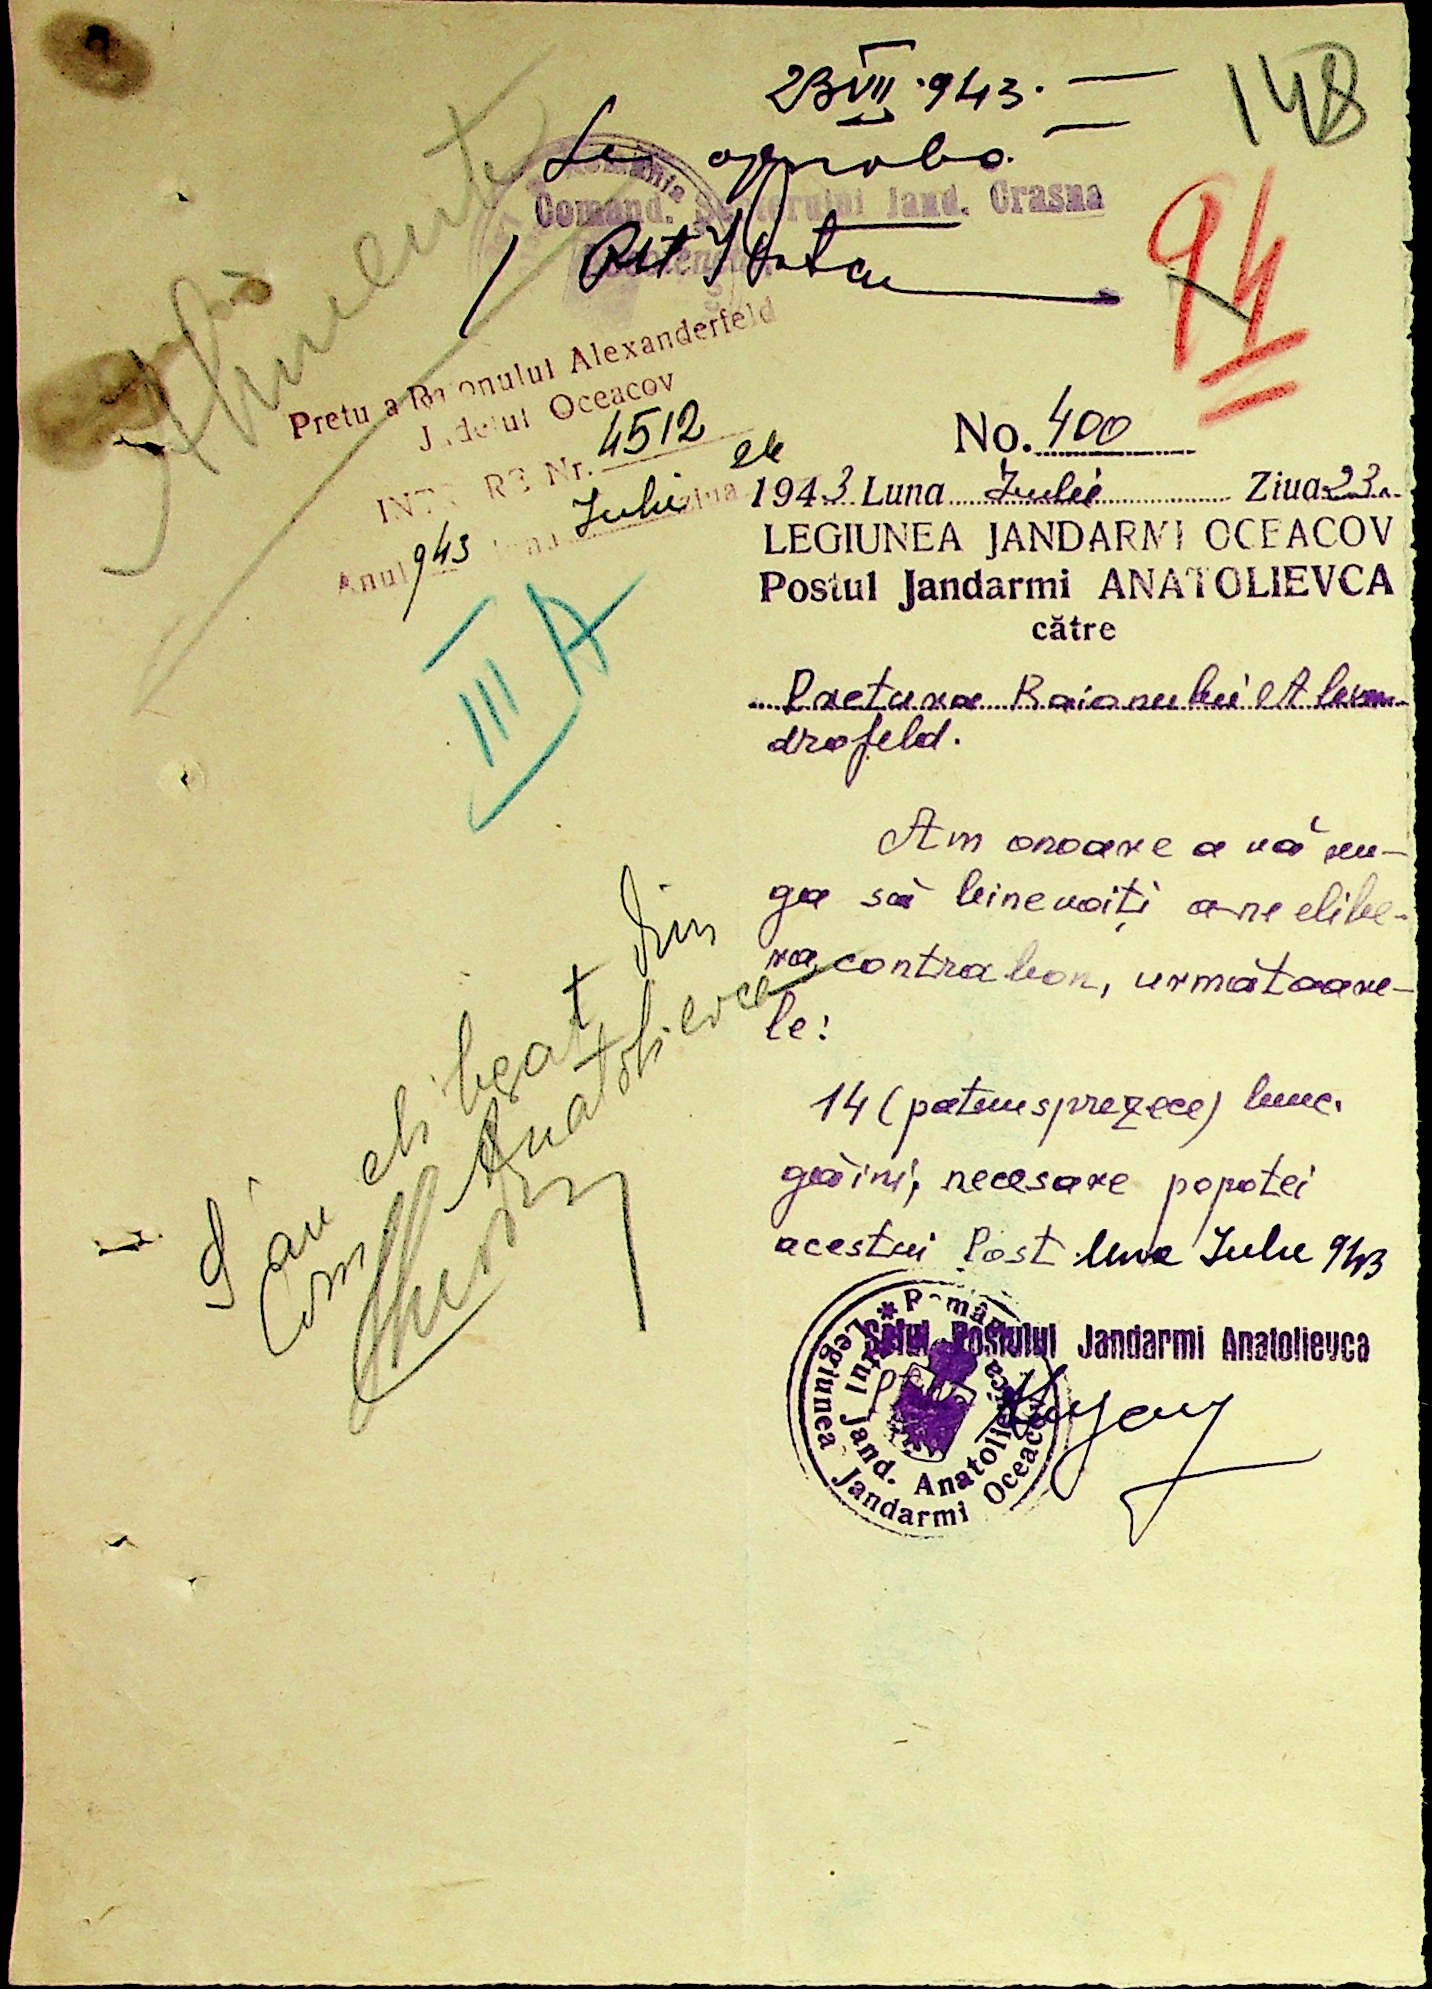 23 VII 943.
148
Se aproba
Comand. Sectorului Jand. Crasna
94
Alimente
Pretura Raionului Alexanderfeld
Județul Oceacov
INTRARE Nr. 4512
Anul 943 luna Iulie ziua 24
III A
No. 400
1943 Luna Iulie Ziua 23
LEGIUNEA JANDARMI OCEACOV
Postul Jandarmi ANATOLIEVCA
către
Pretura Raionului Alexan-
drofeld.
Am onoare a vă ru-
ga să binevoiți a ne elibe-
ra, contra bon, următoare-
le:
14 (patrusprezece) buc.
găini, necesare popotei
acestui Post luna Iulie 943
Șeful Postului Jandarmi Anatolievca
România
Legiunea Jandarmi Oceacov
Postul Jand. Anatolievca
S'au eliberat din
Com. Anatolievca